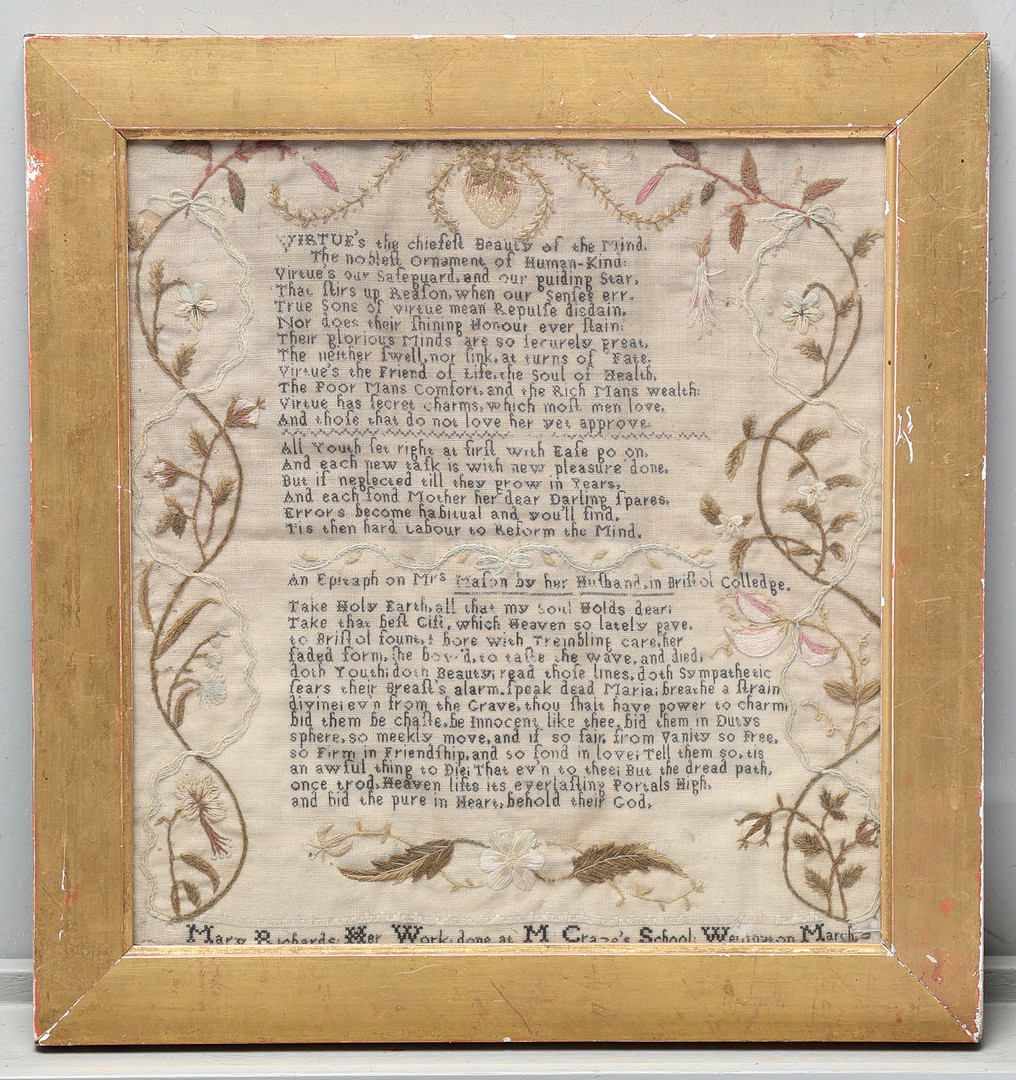 VIRTUE's the chiefeſt Beauty of the Mind,
The nobleſt Ornament of Human-Kind:
Virtue's our Safeguard, and our guiding Star,
That ſtirs up Reaſon, when our Senſes err.
True Sons of Virtue mean Repulſe disdain,
Nor does their ſhining Honour ever ſtain:
Their glorious Minds are so ſecurely great,
The neither ſwell, nor ſink, at turns of Fate.
Virtue's the Friend of Life, the Soul of Health,
The Poor Mans Comfort, and the Rich Mans wealth:
Virtue has ſecret charms, which moſt men love,
And thoſe that do not love her yet approve.
All Youth ſet right at firſt with Eaſe go on,
And each new taſk is with new pleasure done,
But if neglected till they grow in Years,
And each fond Mother her dear Darling ſpares,
Errors become habitual and you'll find,
'Tis then hard Labour to Reform the Mind.
An Epitaph on Mrs Maſon by her Huſband, in Briſtol Colledge.
Take Holy Earth, all that my Soul Holds dear;
Take that beſt Gift, which Heaven so lately gave,
to Briſtol fount, I bore with Trembling care, her
faded form, ſhe bow'd, to taſte the wave, and died,
doth Youth; doth Beauty; read thoſe lines, doth Sympathetic
fears their Breaſts alarm, ſpeak dead Maria; breathe a ſtrain
divine; ev'n from the Grave, thou ſhalt have power to charm,
bid them be chaſte, be Innocent like thee, bid them in Dutys
sphere, so meekly move, and if so fair, from Vanity so Free,
so Firm in Friendſhip, and so fond in love; Tell them so, tis
an awful thing to Die; That ev'n to thee; But the dread path,
once trod, Heaven lifts its everlaſting Portals High,
and bid the pure in Heart, behold their God,
Mary Richards Her Work; done at M Craze's School: March